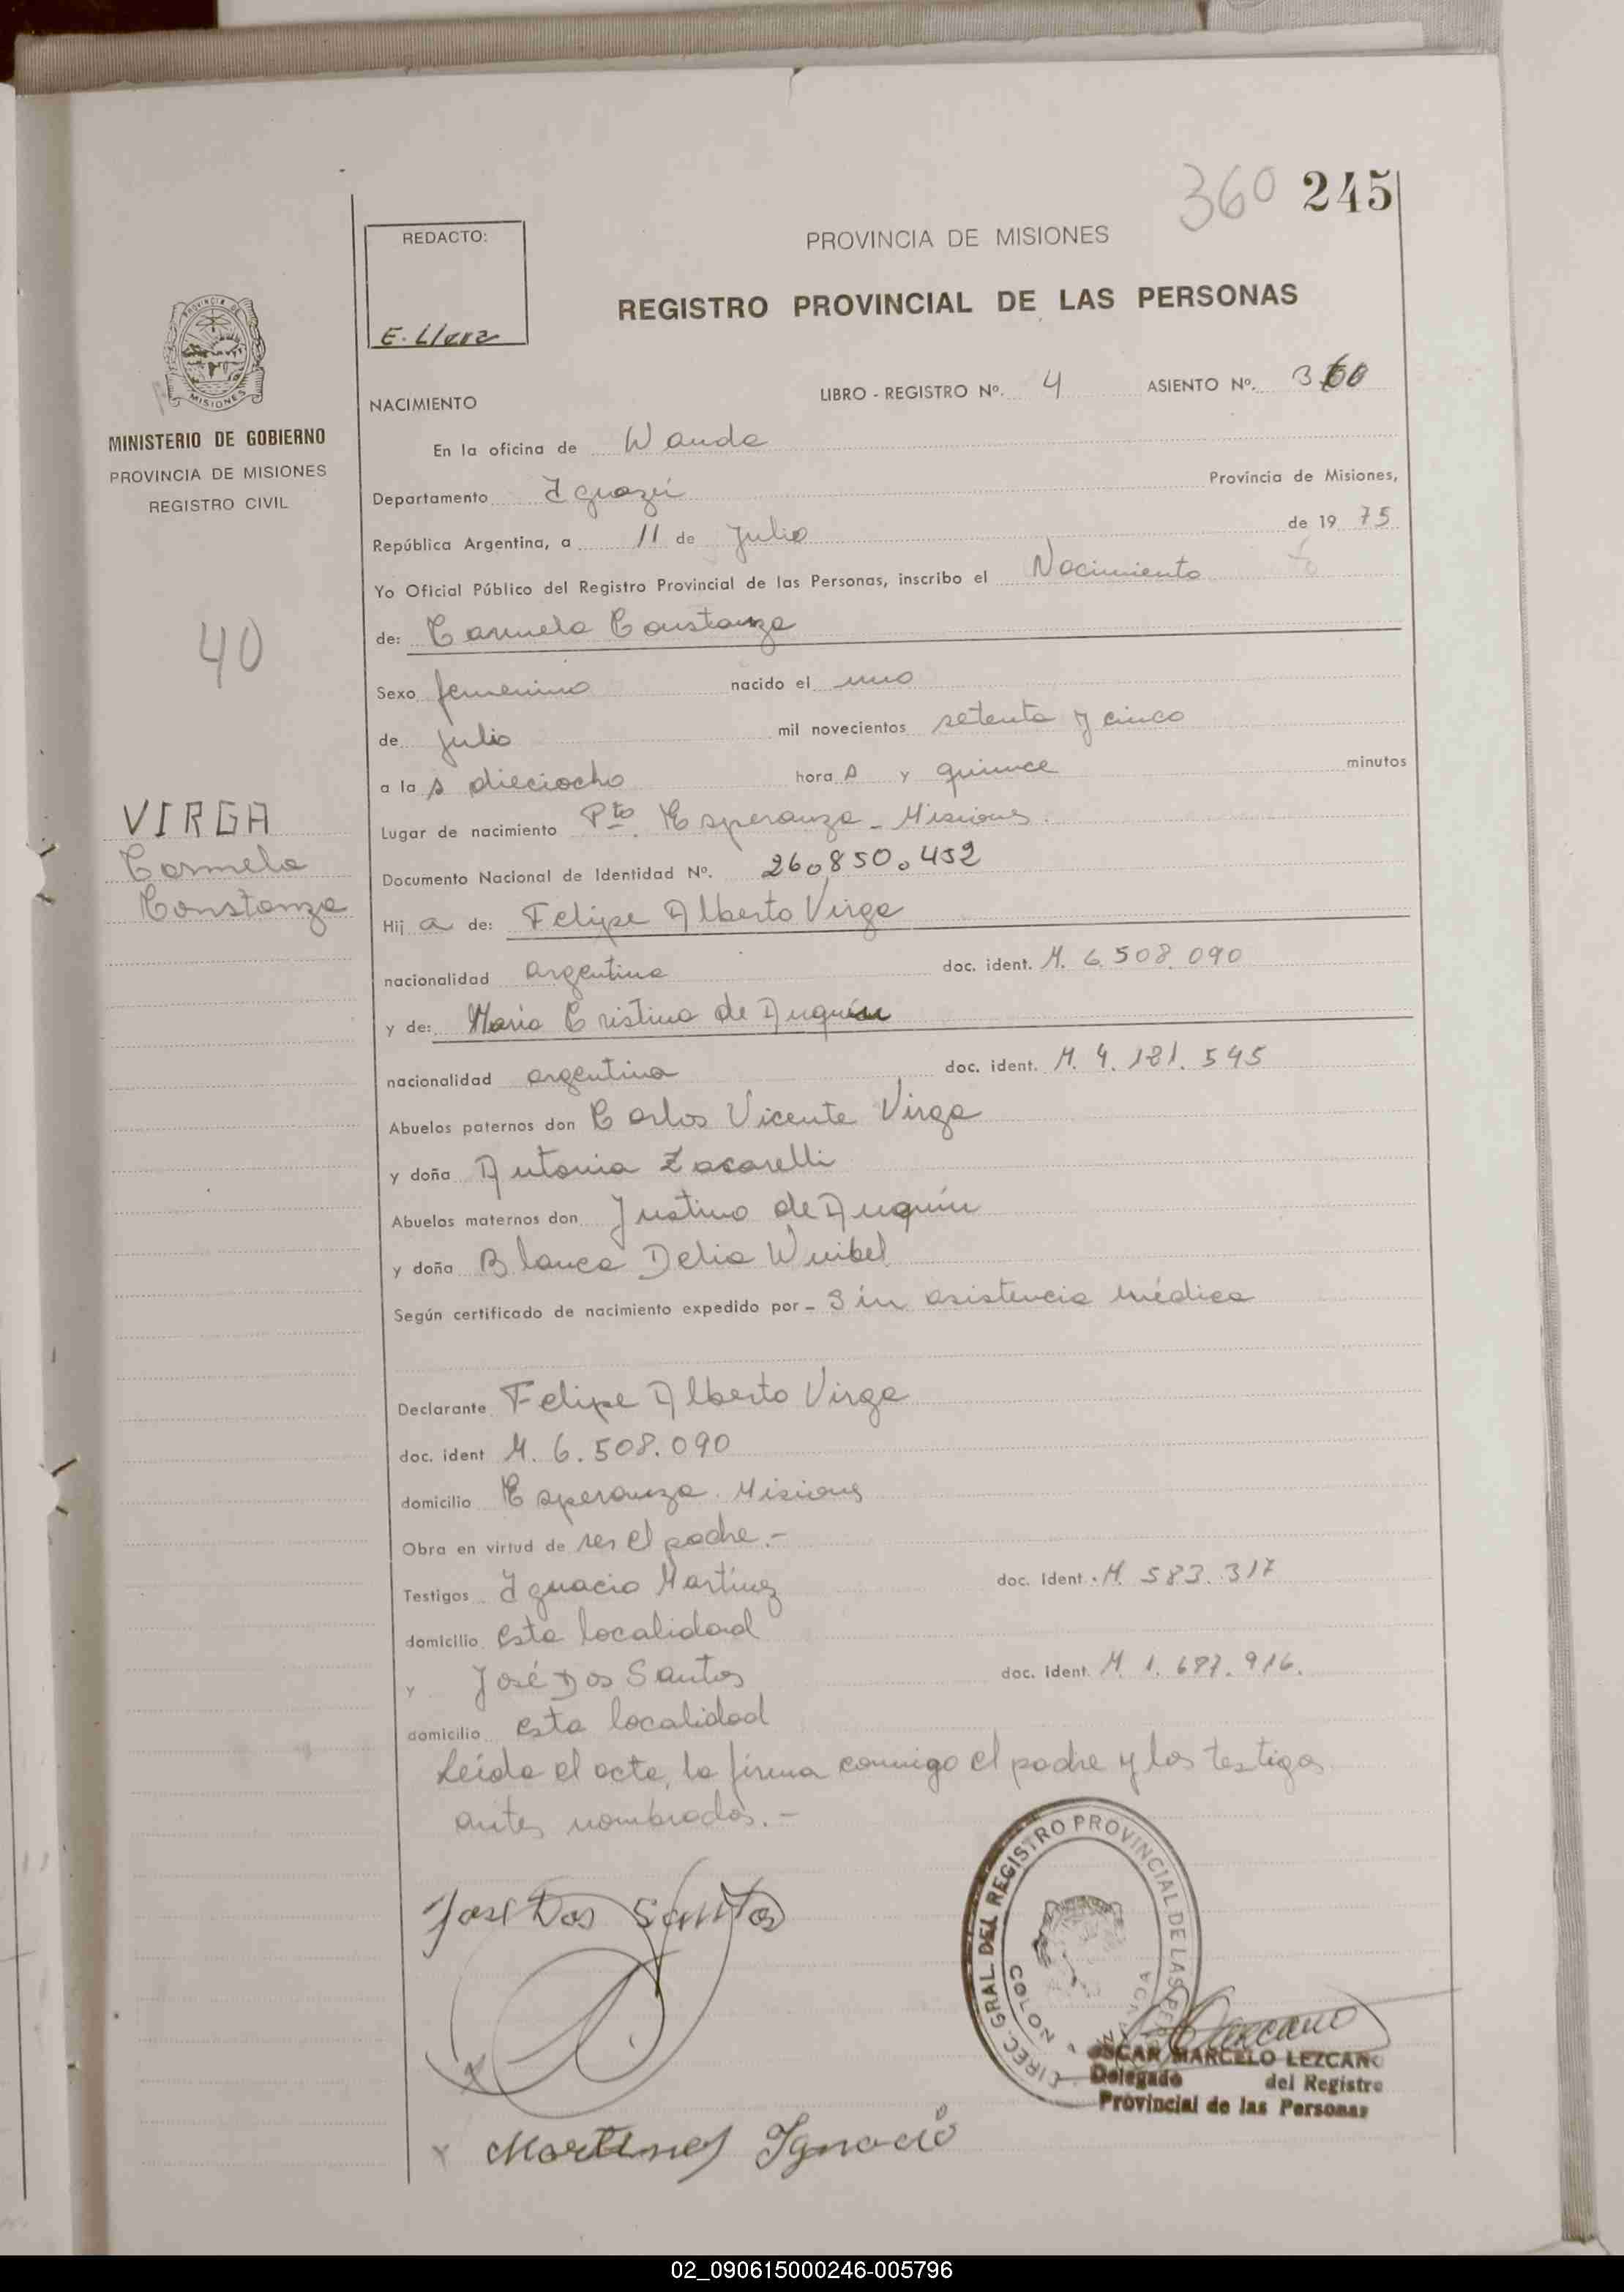 360 245
REDACTO:
PROVINCIA DE MISIONES
REGISTRO PROVINCIAL DE LAS PERSONAS
PROVINCIA DE
MISIONES
MINISTERIO DE GOBIERNO
PROVINCIA DE MISIONES
REGISTRO CIVIL
40
VIRGA
Carmela
Constanza
NACIMIENTO
LIBRO - REGISTRO Nº. 4 ASIENTO Nº. 360
En la oficina de Wanda
Departamento Iguazú Provincia de Misiones,
República Argentina, a 11 de Julio de 19 75
Yo Oficial Público del Registro Provincial de las Personas, inscribo el Nacimiento
de: Carmela Constanza
Sexo femenino nacido el uno
de julio mil novecientos setenta y cinco
a la s dieciocho hora s y quince minutos
Lugar de nacimiento Pto. Esperanza - Misiones.
Documento Nacional de Identidad Nº. 26.850.452
Hij a de: Felipe Alberto Virga
nacionalidad argentina doc. ident. M. 6.508.090
y de: María Cristina de Anquín
nacionalidad argentina doc. ident. M. 4.181.545
Abuelos paternos don Carlos Vicente Virga
y doña Antonia Zacarelli
Abuelos maternos don Justino de Anquín
y doña Blanca Delia Wuibel
Según certificado de nacimiento expedido por - Sin asistencia médica
Declarante Felipe Alberto Virga
doc. ident M. 6.508.090
domicilio Esperanza. Misiones
Obra en virtud de ser el padre.-
Testigos Ignacio Martínez doc. Ident. M. 583.317
domicilio esta localidad
y José Dos Santos doc. Ident. M. 1.687.916.
domicilio esta localidad
Leída el acta, la firma conmigo el padre y los testigos
antes nombrados.-
José Dos Santos
DIREC. GRAL. DEL REGISTRO PROVINCIAL DE LAS PERSONAS
COLONIA WANDA
Lezcano
OSCAR MARCELO LEZCANO
Delegado del Registro
Provincial de las Personas
x Martines Ignacio
02_090615000246-005796